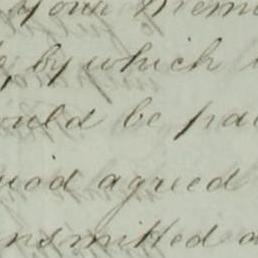 your Mem
by which
ould be pai
riod agreed
nsmitted a